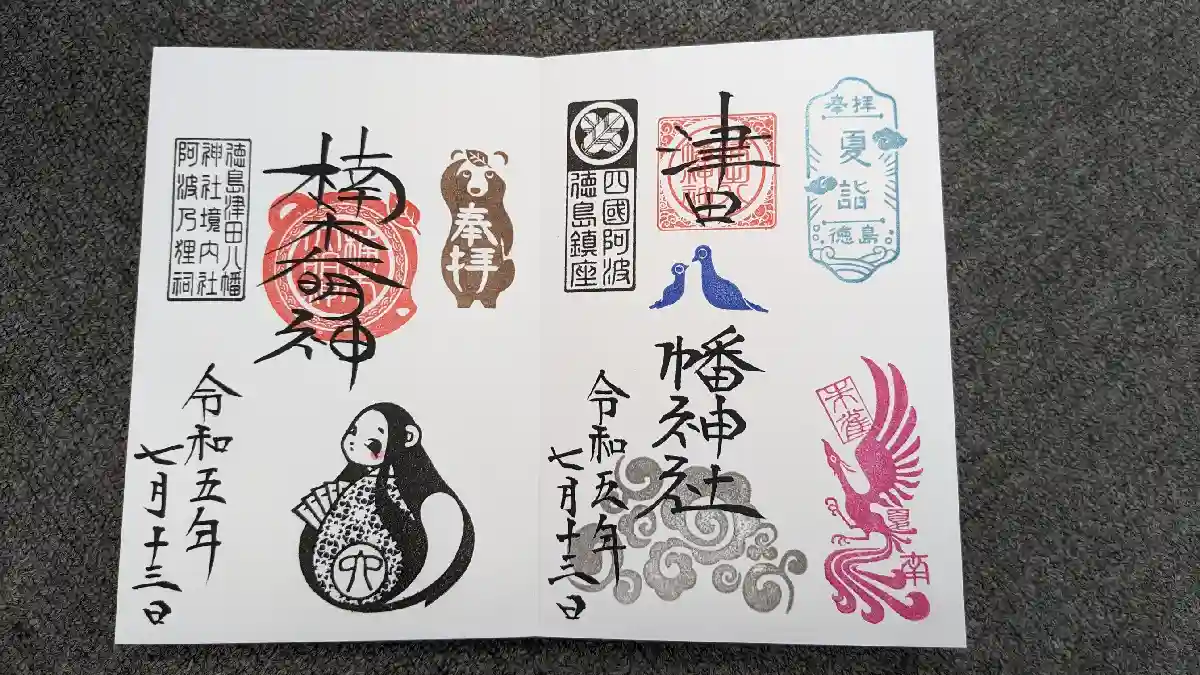 奉拝
夏詣
徳島
朱雀
夏
南
津田
幡神社
四國阿波
徳島鎮座
令和五年
七月十三日
奉拝
楠木大明神
六
令和五年
七月十三日
徳島津田八幡
神社境内社
阿波乃狸祠